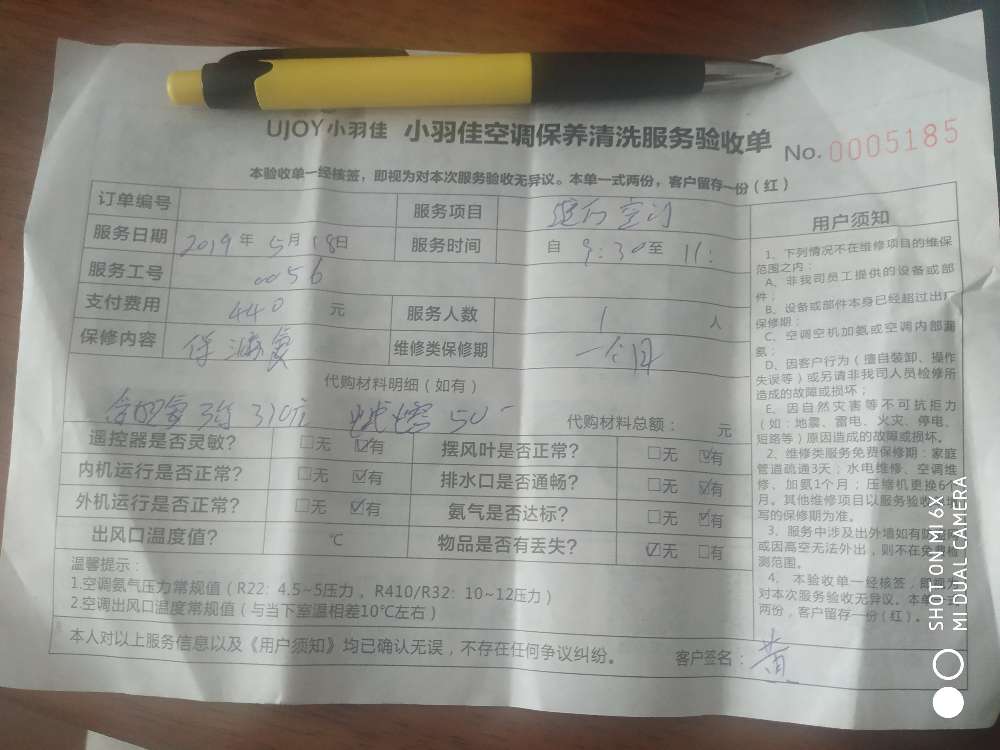 UJOY小羽佳 小羽佳空调保养清洗服务验收单 No. 0005185
本验收单一经核签，即视为对本次服务验收无异议。本单一式两份，客户留存一份（红）
订单编号 服务项目 空调
服务日期 2019年5月18日 服务时间 自 9:30至 11:
服务工号 0056
支付费用 440 元 服务人数 1 人
保修内容 维修类保修期 一个月
代购材料明细（如有）
310元 50
代购材料总额： 元
遥控器是否灵敏？ □无 ☑有 摆风叶是否正常？ □无 ☑有
内机运行是否正常？ □无 ☑有 排水口是否通畅？ □无 ☑有
外机运行是否正常？ □无 ☑有 氨气是否达标？ □无 ☑有
出风口温度值？ ℃ 物品是否有丢失？ ☑无 □有
温馨提示：
1.空调氨气压力常规值（R22：4.5~5压力，R410/R32：10~12压力）
2.空调出风口温度常规值（与当下室温相差10℃左右）
本人对以上服务信息以及《用户须知》均已确认无误，不存在任何争议纠纷。 客户签名：黄
用户须知
1、下列情况不在维修项目的维保
范围之内：
A、非我司员工提供的设备或部
件；
B、设备或部件本身已经超过出厂
保修期；
C、空调空机加氨或空调内部漏
氨；
D、因客户行为（擅自装卸、操作
失误等）或另请非我司人员检修所
造成的故障或损坏；
E、因自然灾害等不可抗拒力
（如：地震、雷电、火灾、停电、
短路等）原因造成的故障或损坏。
2、维修类服务免费保修期：家庭
管道疏通3天；水电维修、空调维
修、加氨1个月；压缩机更换6个
月。其他维修项目以服务验收单
写的保修期为准。
3、服务中涉及出外墙如有防盗网
或因高空无法外出，则不在免费检
测范围。
4、本验收单一经核签，即视为
对本次服务验收无异议。本单一式
两份，客户留存一份（红）。
SHOT ON MI 6X
MI DUAL CAMERA